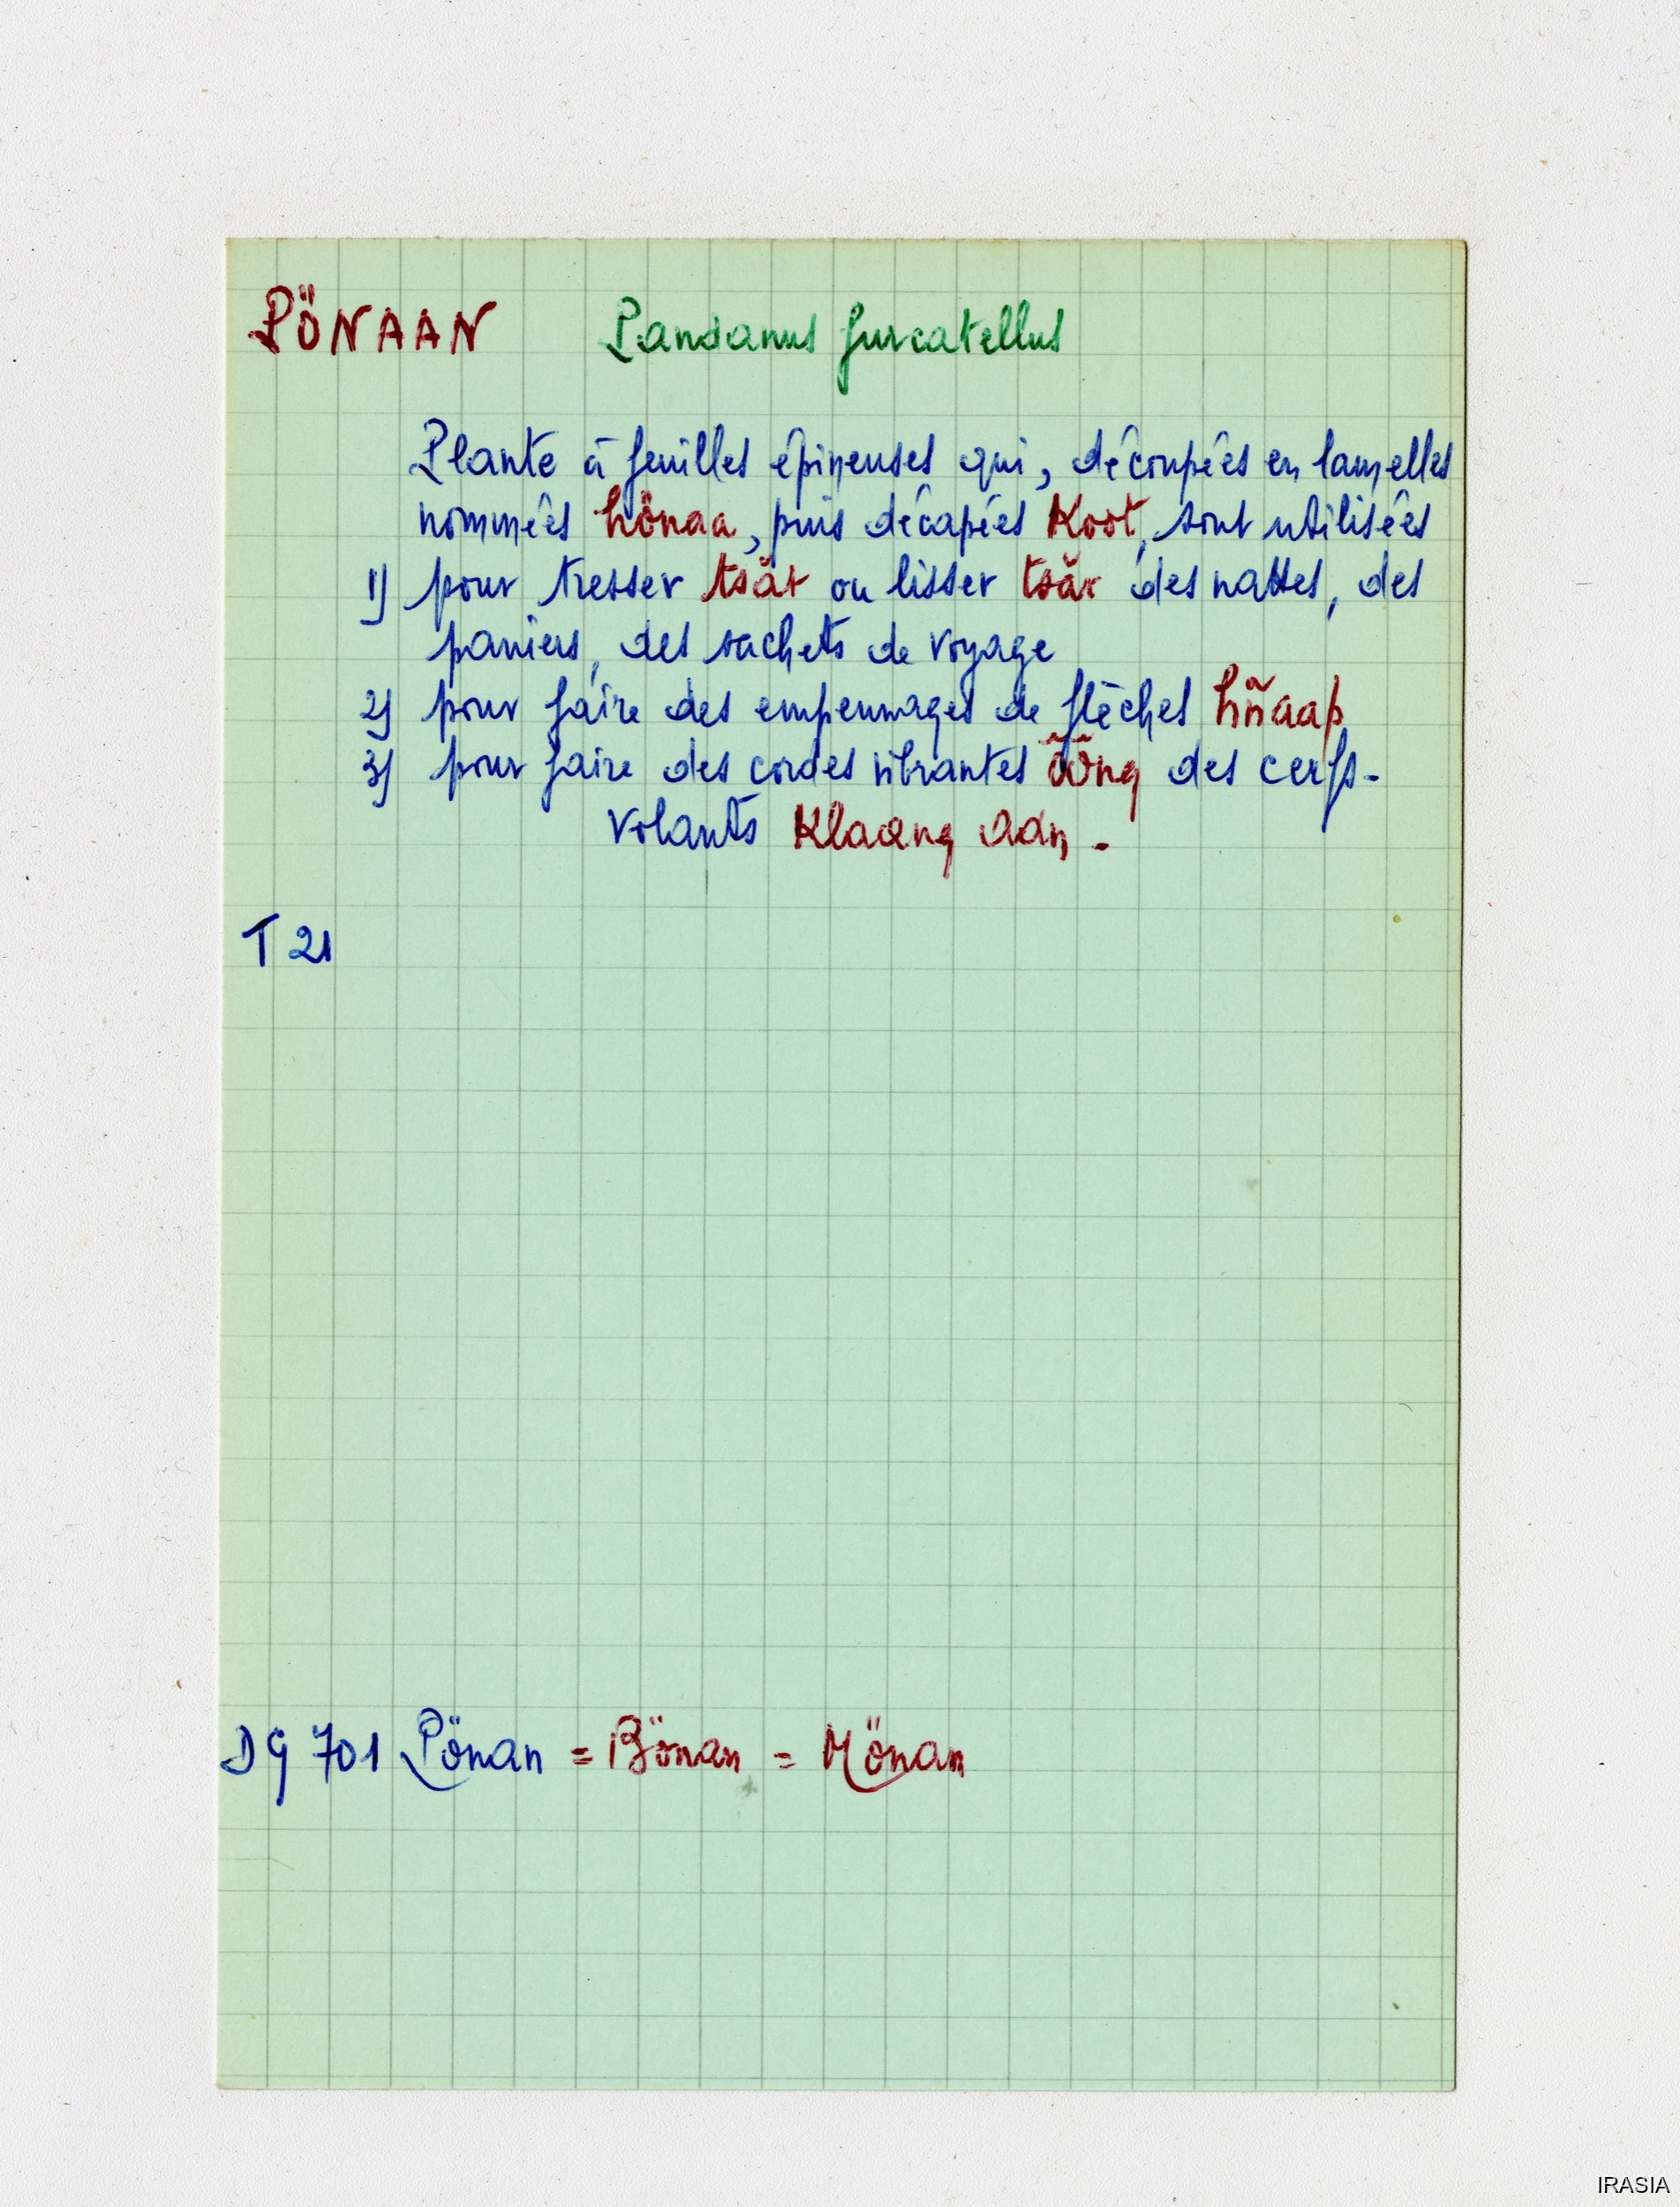 PÖNAAN Pandanus furcatellus
Plante à feuilles épineuses qui, découpées en lamelles
nommées hönaa, puis décapées Koot, sont utilisées
1) pour tresser tsät ou lisser tsăr des nattes, des
paniers, des sachets de voyage
2) pour faire des empennages de flèches
3) pour faire des cordes vibrantes des cerfs-
volants Klaang aan.
T 21
DG 701 Pönan = Bönan = Mönan
IRASIA